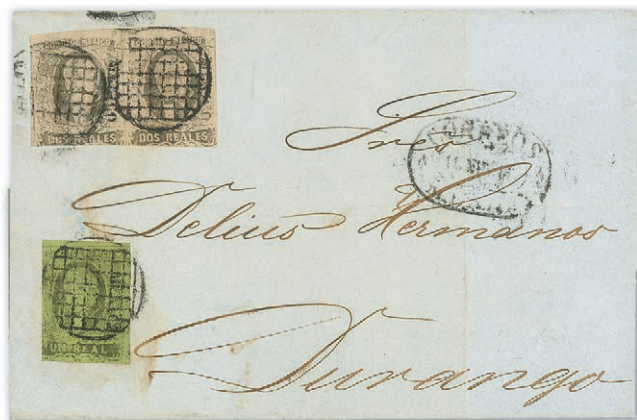 DOS REALES DOS REALES
CORREOS
Sres
Delius Hermanos
UN REAL
Durango